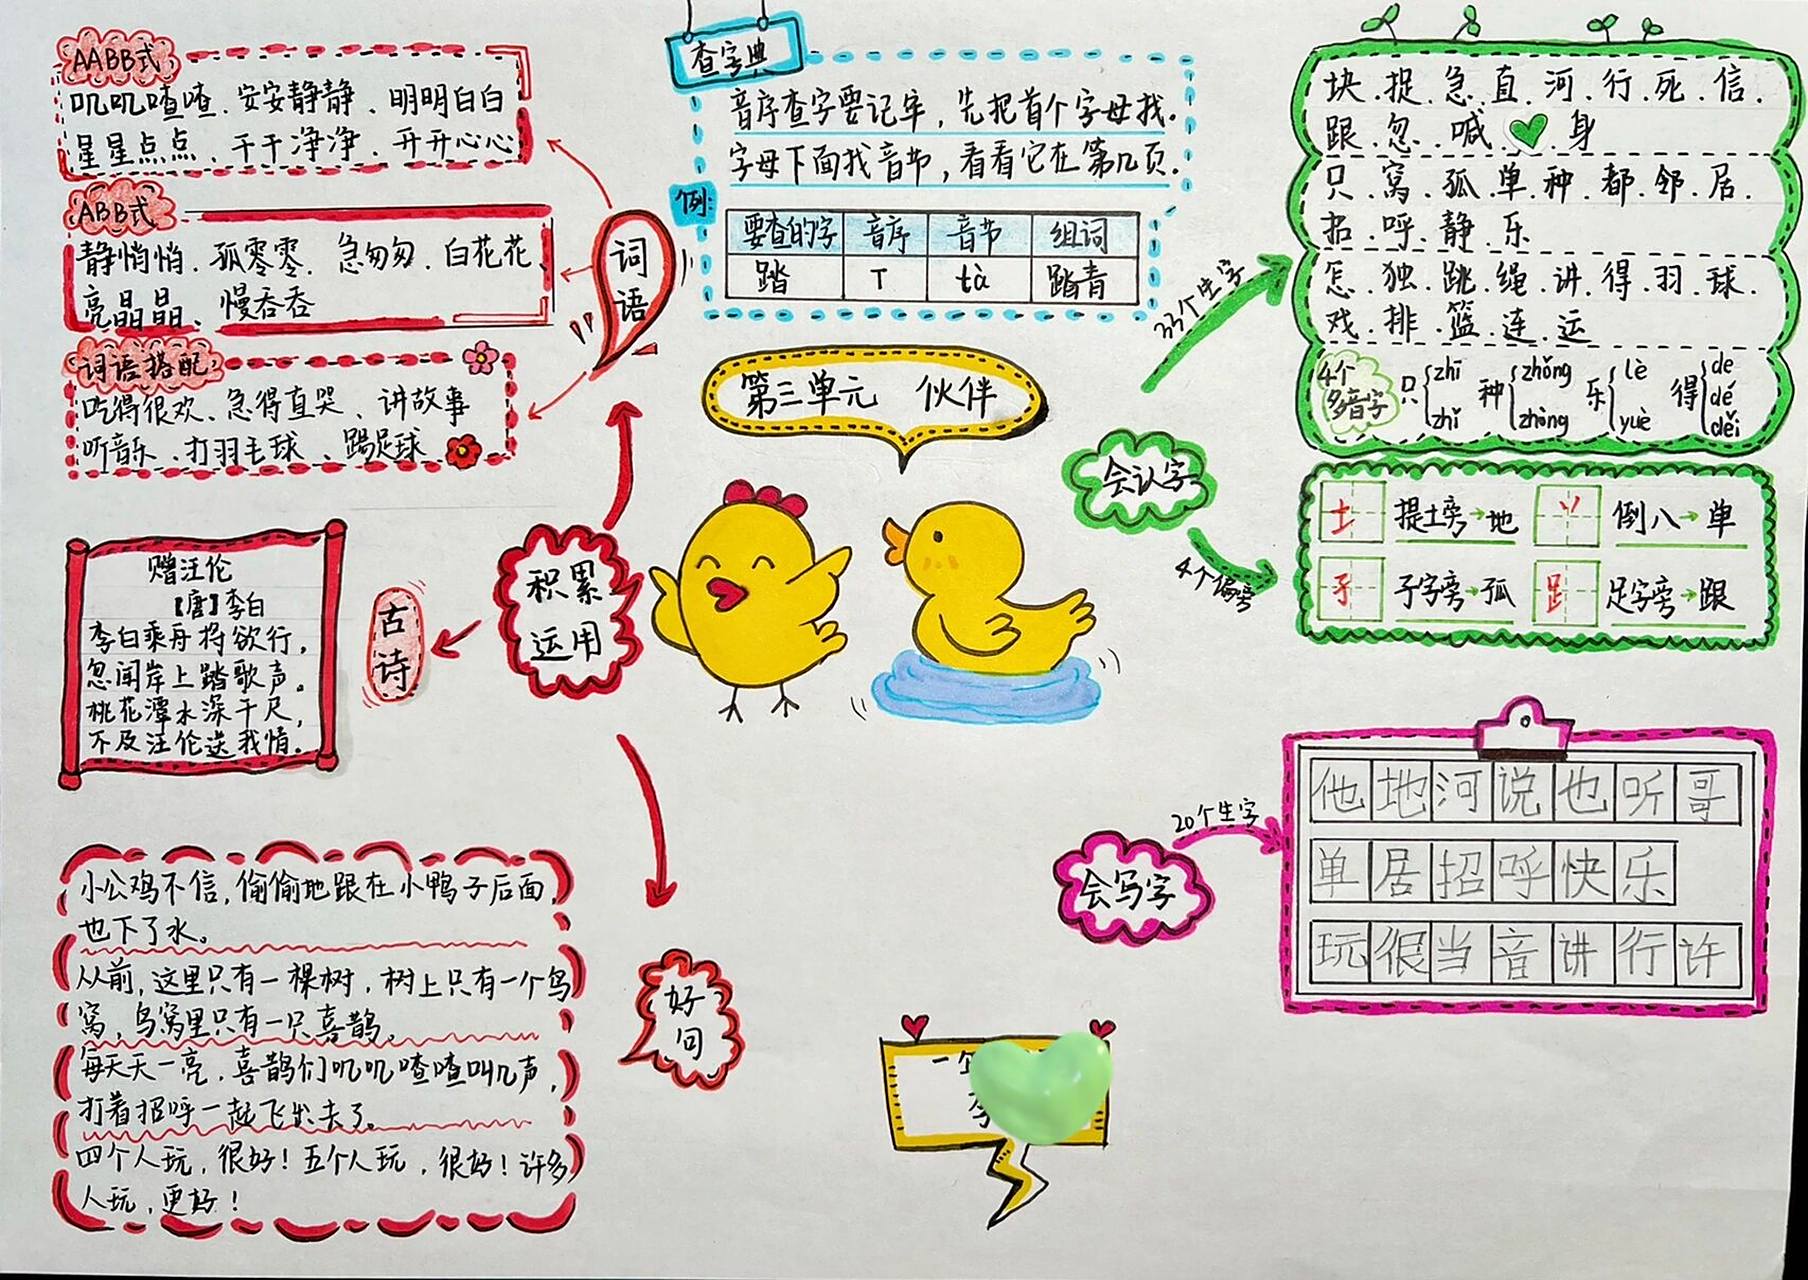 AABB式
叽叽喳喳、安安静静、明明白白
星星点点、干干净净、开开心心
ABB式
静悄悄、孤零零、急匆匆、白花花
亮晶晶、慢吞吞
词语搭配
吃得很欢、急得直哭、讲故事
听音乐、打羽毛球、踢足球
词语
查字典
音序查字要记牢，先把首个字母找。
字母下面找音节，看看它在第几页。
例:
要查的字 音序 音节 组词
踏 T tà 踏青
第三单元 伙伴
33个生字
块.捉.急.直.河.行.死.信.
跟.忽.喊.身
只.窝.孤.单.种.都.邻.居.
招.呼.静.乐
怎.独.跳.绳.讲.得.羽.球.
戏.排.篮.连.运
4个多音字
只 zhī zhǐ
种 zhǒng zhòng
乐 lè yuè
得 de dé děi
会认字
4个偏旁
土 提土旁→地 丷 倒八→单
孑 子字旁→孤 𧾷 足字旁→跟
积累运用
古诗
赠汪伦
【唐】李白
李白乘舟将欲行，
忽闻岸上踏歌声。
桃花潭水深千尺，
不及汪伦送我情。
会写字
20个生字
他地河说也听哥
单居招呼快乐
玩很当音讲行许
好句
小公鸡不信，偷偷地跟在小鸭子后面，
也下了水。
从前，这里只有一棵树，树上只有一个鸟
窝，鸟窝里只有一只喜鹊。
每天天一亮，喜鹊们叽叽喳喳叫几声，
打着招呼一起飞出去了。
四个人玩，很好！五个人玩，很好！许多
人玩，更好！